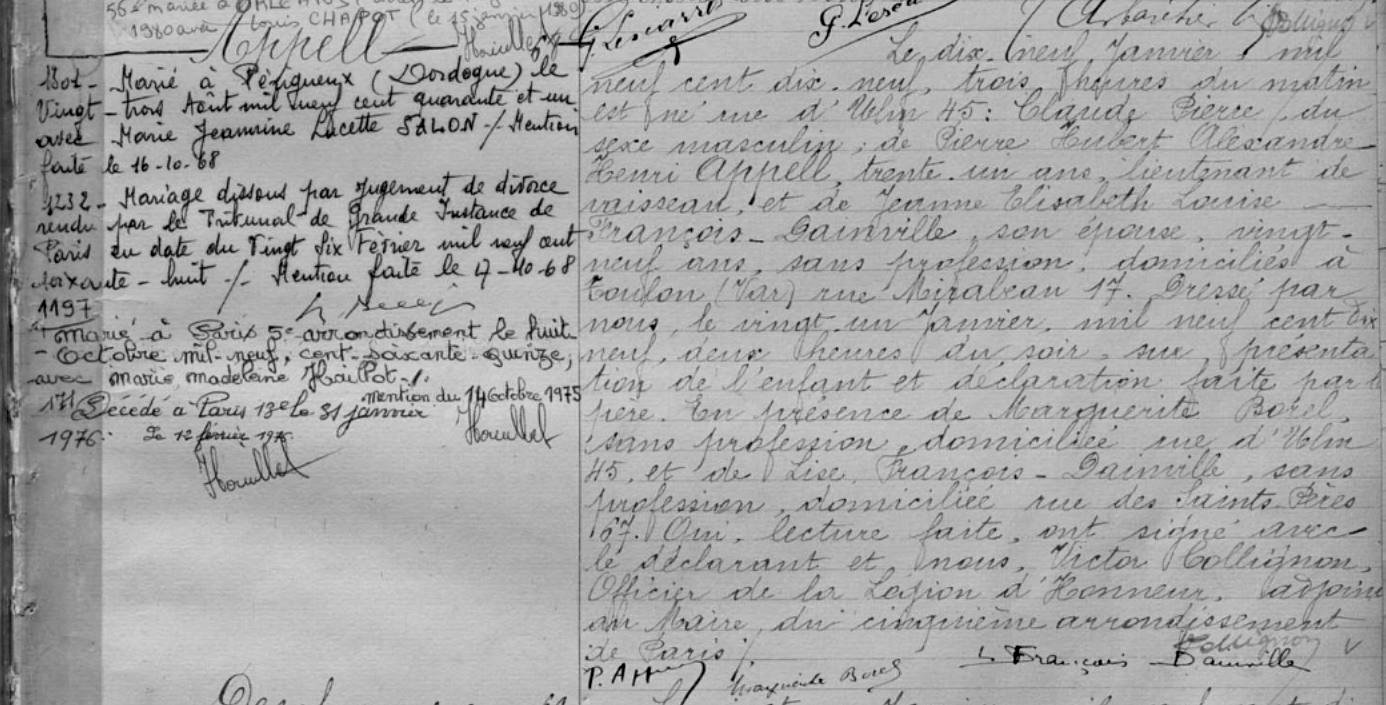 56e mariée à ORLEANS
1980 avec Louis CHAPOT (le 15 janvier 1980)
Appell
1301 - Marié à Périgueux (Dordogne) le
Vingt-trois Août mil neuf cent quarante et un
avec Marie Jeannine Lucette SALON -/- Mention
faite le 16-10-68
1232 - Mariage dissous par Jugement de divorce
rendu par le Tribunal de Grande Instance de
Paris en date du Vingt Six Février mil neuf cent
soixante-huit -/- Mention faite le 17-10-68
1197
Marié à Paris 5e arrondissement le huit
Octobre mil-neuf-cent-soixante-quinze,
avec Marie Madeleine
mention du 14 Octobre 1975
171 Décédé à Paris 13e le 31 janvier
1976. Le 12 février 1976.
G. Lescarre
Le dix-neuf Janvier mil
neuf cent dix-neuf, trois heures du matin
est né rue d'Ulm 45: Claude Pierre, du
sexe masculin, de Pierre Hubert Alexandre
Henri Appell, trente-un ans, lieutenant de
vaisseau, et de Jeanne Elisabeth Louise
François-Dainville, son épouse, vingt-
neuf ans, sans profession, domiciliés à
Toulon (Var) rue Mirabeau 17. Dressé par
nous, le vingt-un Janvier, mil neuf cent dix
neuf, deux heures du soir, sur présenta
tion de l'enfant et déclaration faite par le
père. En présence de Marguerite Borel,
sans profession, domiciliée rue d'Ulm
45, et de Lise François-Dainville, sans
profession, domiciliée rue des Saints-Pères
67. Qui, lecture faite, ont signé avec
le déclarant et nous, Victor Collignon,
Officier de la Légion d'Honneur, adjoint
au Maire du cinquième arrondissement
de Paris /.
Collignon
P. Appell Marguerite Borel L François-Dainville